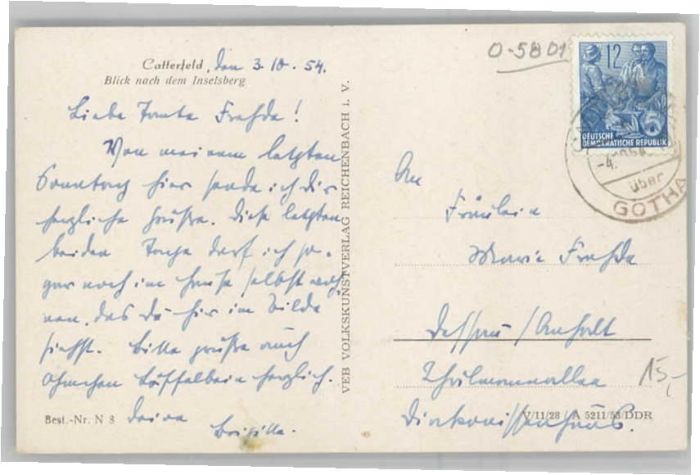 Catterfeld, den 3.10.54.
Blick nach dem Inselsberg
Liebe Tante Frehde!
Von meinem letzten
Sonntag hier sende ich Dir
herzliche Grüße. Diese letzten
beiden Tage darf ich so-
gar noch im Hause selbst woh-
nen, das Du hier im Bilde
siehst. Bitte grüße auch
Löffelbein herzlich.
Deine
Brigitte.
Best.-Nr. N 8
VEB VOLKSKUNSTVERLAG REICHENBACH i. V.
O-5801
12
5
DEUTSCHE
DEMOKRATISCHE REPUBLIK
-4.
über
GOTHA
An
Fräulein
Marie Frehde
Dessau/Anhalt
Thälmannallee
Diakonissenhaus.
15,-
V/11/28 / A 5211/53/DDR